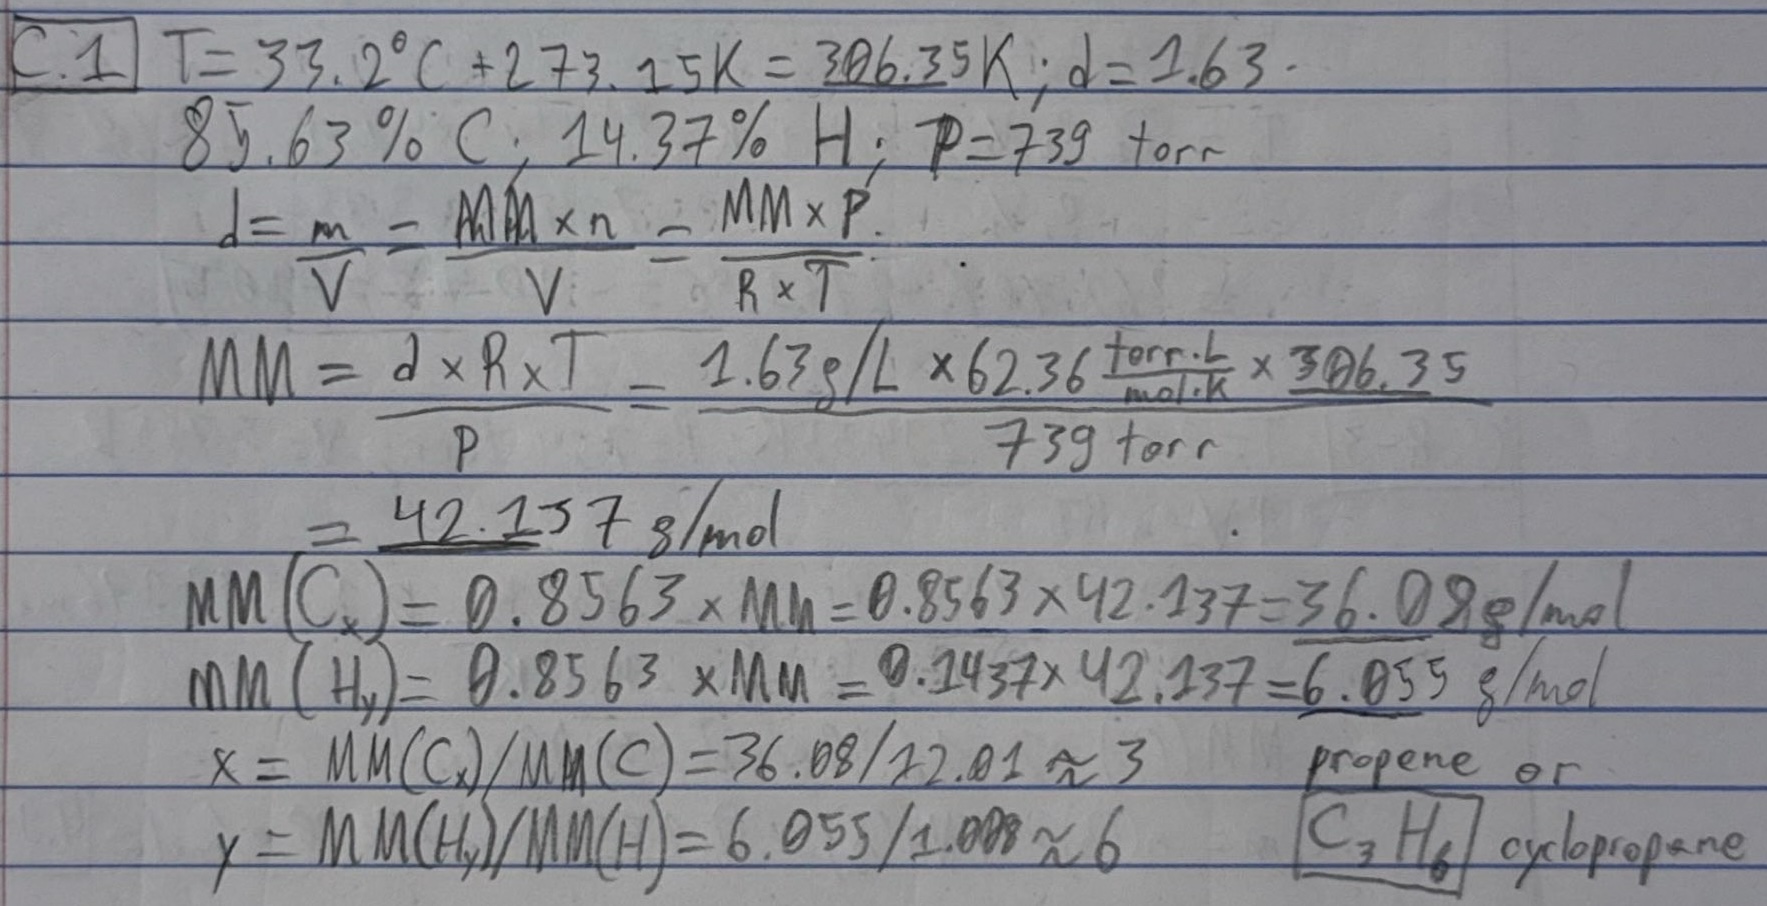 C.1 T=33.2°C+273.15K=306.35K; d=1.63
85.63% C; 14.37% H; P=739 torr
d = m/V = MM×n/V = MM×P/R×T
MM = d×R×T/P = 1.63g/L × 62.36 torr·L/mol·K × 306.35/739 torr
= 42.137 g/mol
MM(Cx) = 0.8563 × MM = 0.8563 × 42.137 = 36.08 g/mol
MM(Hy) = 0.8563 × MM = 0.1437 × 42.137 = 6.055 g/mol
x = MM(Cx)/MM(C) = 36.08/12.01 ≈ 3 propene or
y = MM(Hy)/MM(H) = 6.055/1.008 ≈ 6 C3H6 cyclopropane